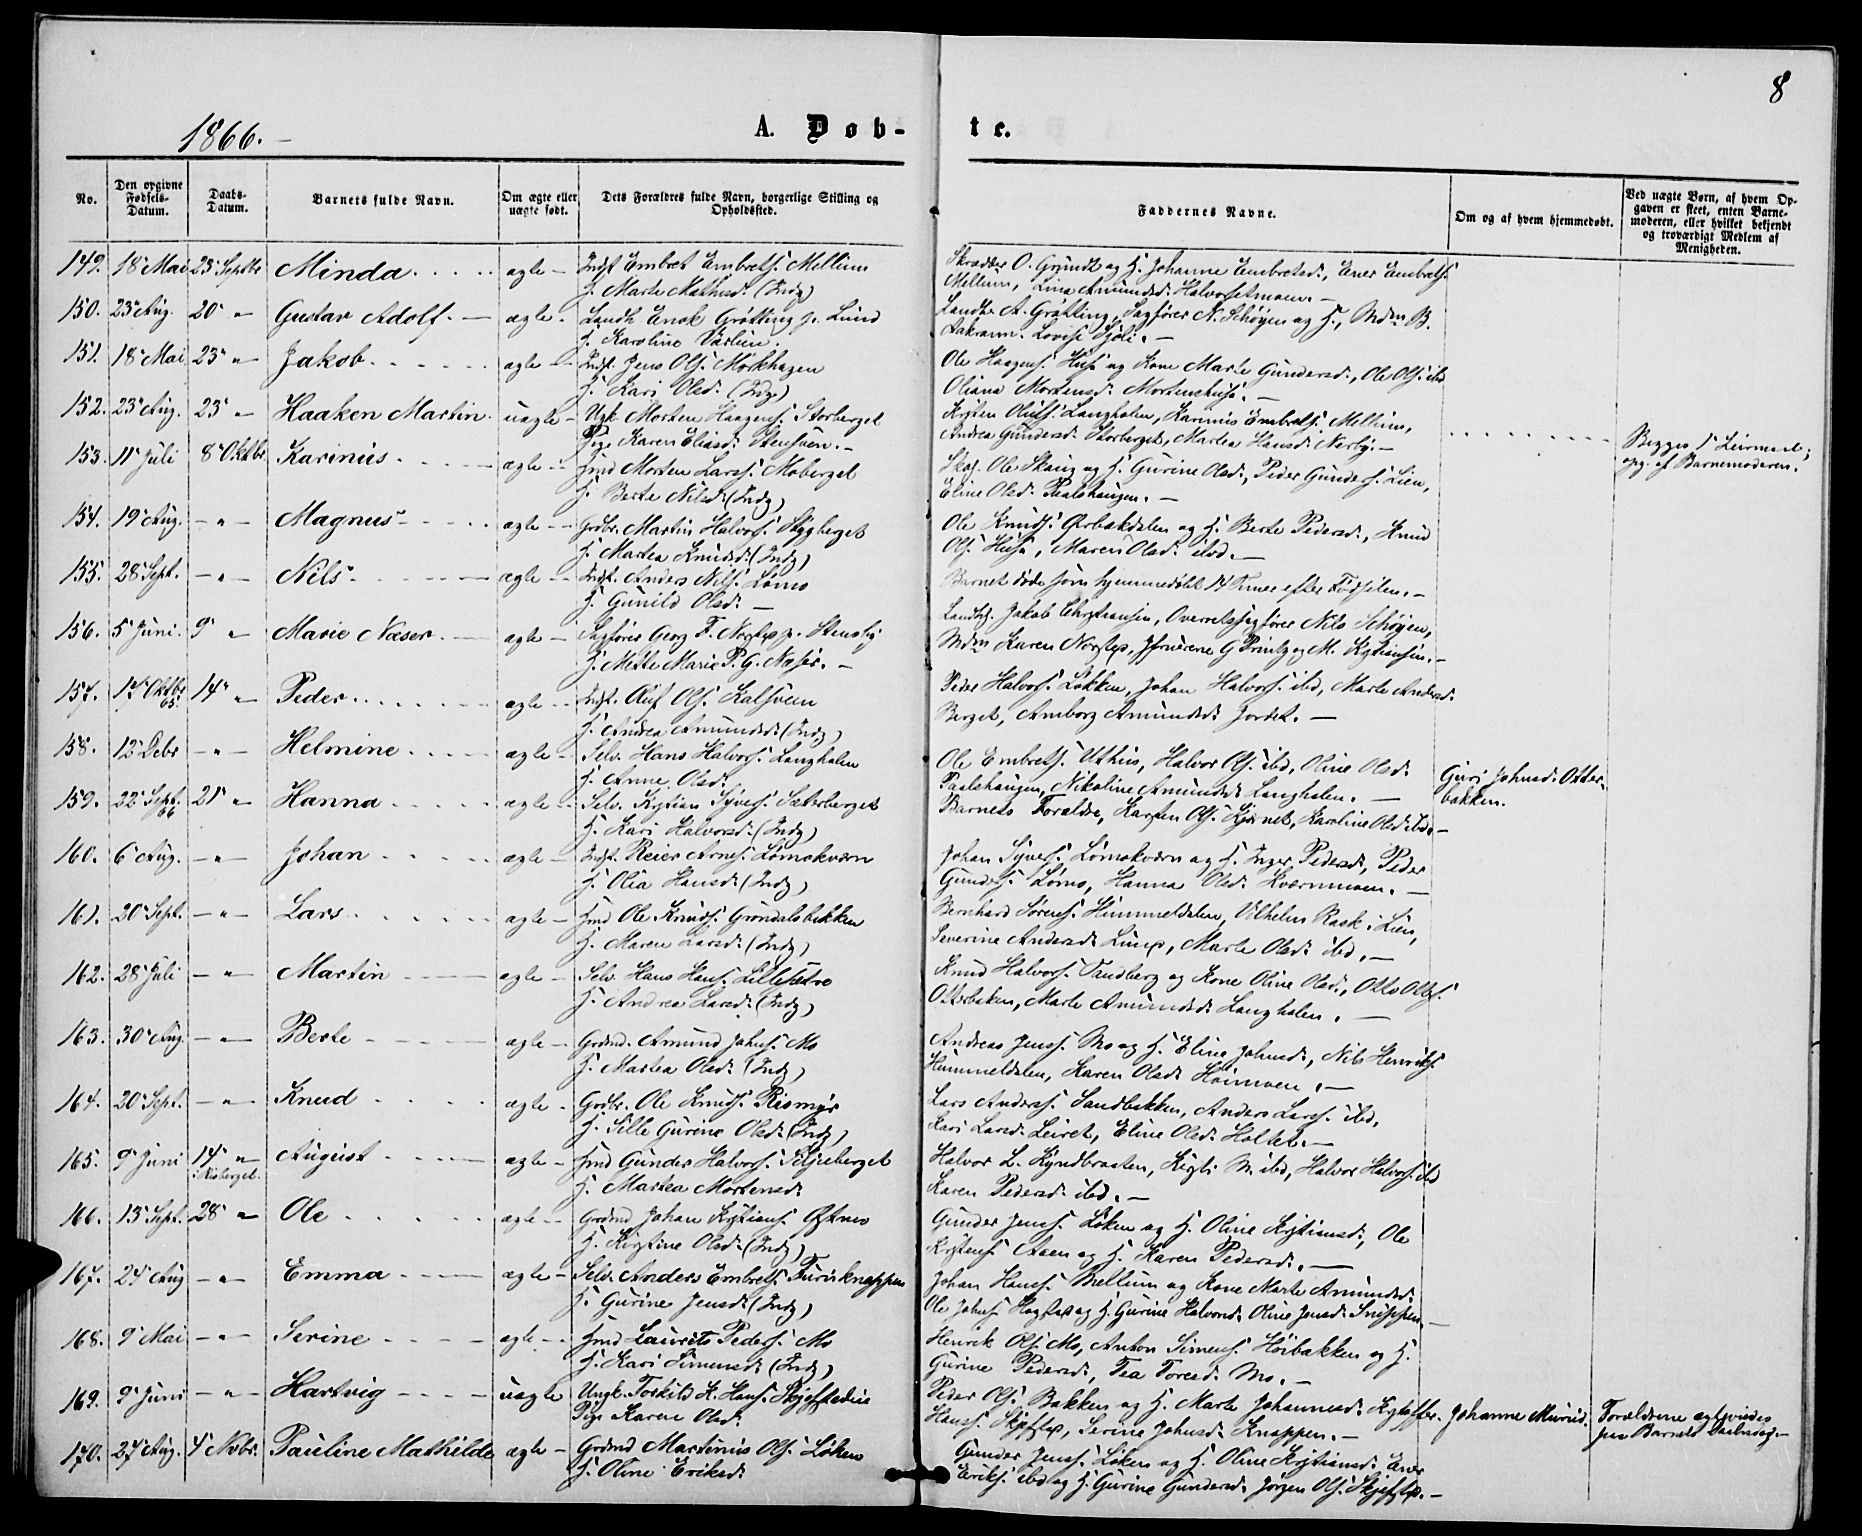 8
1866.
A. Døb-
te.
No.
Den opgivne Fødsels-Datum.
Daabs-Datum.
Barnets fulde Navn.
Om ægte eller uægte født.
Dets Forældres fulde Navn, borgerlige Stilling og Opholdssted.
Faddernes Navne.
Om og af hvem hjemmedøbt.
Ved uægte Børn, af hvem Opgaven er skeet, enten Barnemoderen, eller hvilket bekjendt og troværdigt Medlem af Menigheden.
149. 18 Mai 23 Septbr Minda ægte Indst Embret Embrets. Mellum
H. Marte Mathisd. (Indg)
Skrædder O. Grundt og H. Johanne Embretsd., Ener Embrets.
Mellum, Lina Amundsd. Halvorsetmoen.
150. 23 Aug. 20 " Gustav Adolf ægte Landh. Enok Grøtting p. Lund
H. Karoline
Landh. A. Grøtting, Sagfører N. Schøyen og H., Mdm B.
Lovise
151. 18 Mai 23 " Jakob ægte Indst. Jens Ols. Mørkhagen
H. Kari Olsd. (Indg)
Ole Haagens. Huse og Kone Marte Gundersd., Ole Ols. ibd
Oliana Mortensd. Mortenshuse.
152. 23 Aug. 23 " Haaken Martin uægte Ugk Morten Haagens. Storberget
Pige Karen Eliasd. Stensveen.
Kristen Olufs. Langholen, Karinus Embrets. Mellum,
Andrea Gundersd. Storberget, Martea Hansd. Nerby.
Begges 1 Leiermaal;
opg. af Barnemoderen.
153. 11 Juli 8 Oktbr Karinus ægte Hmd Morten Larss. Moberget
H. Berte Nilsd. (Indg)
Skol. Ole Skaug og H. Gurine Olsd., Peder Gunders. Lien,
Eline Olsd. Paalshaugen.
154. 19 Aug. - " - Magnus ægte Grdbr. Martin Halvors. Stygberget
H. Martea Knudsd. (Indg)
Ole Knuds. Ørbækdalen og H. Berte Pedersd., Knud
Ols. Huse, Maren Olsd. ibd.
155. 28 Sept. - " - Nils ægte Indst. Anders Nils. Lømo
H. Gunild Olsd.
Barnet døde som hjemmedøbt 14 Timer efter Fødselen.
156. 5 Juni. 9 " Marie Næser ægte Sagfører Georg F. p. Stensby
H. Mette Marie P. G. Næser.
Jakob Christiansen, Overretssagfører Nils Schøyen,
Mdm Karen G Printz og M. Kristiansen.
157. 17 Oktbr 65. 14 " Peder ægte Indst. Oluf Ols. Kalsveen
H. Andrea Amundsd. (Indg)
Peder Halvors. Løkken, Johan Halvors. ibd, Marte Andersd.
Berget, Amborg Amundsd. Jordet.
158. 12 Debr - " - Helmine ægte Selv. Hans Halvors. Langholen
H. Anne Olsd.
Ole Embrets. Uthus, Halvor Ols. ibd, Oline Olsd.
Paalshaugen, Nikoline Amundsd. Langholen.
Guri Johnsd. Otter-
bakken.
159. 22 Sept. 66 21 " Hanna ægte Selv. Kristian Syvers. Sæterberget
H. Kari Halvorsd. (Indg)
Barnets Forældre, Karsten Ols. Kjernet, Karoline Olsd ibd.
160. 6 Aug. - " - Johan ægte Indst. Reier Arnes. Lømokværn
H. Olia Hansd. (Indg)
Johan Syvers. Lømokværn og H. Inger Pedersd., Peder
Gunders. Lømo, Hanna Olsd. Kværnmoen.
161. 20 Sept. - " - Lars ægte Hmd Ole Knuds. Grøndalsbakken
H. Maren Larsd. (Indg)
Bernhard Sørens. Hummeldalen, Vilhelm Rask i Lien,
Severine Andersd. Linup, Marte Olsd. ibd.
162. 28 Juli - " - Martin ægte Selv. Hans Hans. Lillesætre
H. Andrea Larsd. (Indg)
Knud Halvors. Sandberg og Kone Oline Olsd., Otto Ottos.
Otterbaken, Marte Amundsd. Langholen.
163. 30 Aug. - " - Berte ægte Grdmd. Amund Johns. Mo
H. Martea Olsd. (Indg)
Andreas Jenss. Mo og H. Eline Johnsd., Nils Henriks.
Hummeldalen, Karen Olsd. Høimoen.
164. 20 Sept. - " - Knud ægte Grdbr. Ole Knuds. Rismyr
H. Sille Gurine Olsd. (Indg)
Lars Anders. Sandbakken, Anders Larss. ibd,
Kari Larsd. Leiret, Eline Olsd. Holtet.
165. 9 Juni 14 " August ægte Hmd Gunder Halvors. Kiljeberget
i Risberget.
H. Martea Mortensd.
Halvor L. Kyndbraaten, Kirsti M. ibd, Halvor Halvors. ibd
Karen Pedersd. ibd.
166. 13 Sept. 28 " Ole ægte Grdmd Johan Kristians. Østmo
H. Kirstine Olsd. (Indg)
Gunder Jens. Løken og H. Oline Kristiansd., Ole
Kristens. Aaen og H. Karen Pedersd.
167. 24 Aug - " - Emma ægte Selv. Anders Embrets. Furuknappen
H. Gurine Jensd. (Indg)
Johan Hans. Mellum og Kone Marte Amundsd.
Ole Johns. og H. Gurine Halvorsd. Oline Jensd. Snippen.
168. 9 Mai - " - Serine ægte Hmd Laurits Peders. Mo
H. Kari Simensd. (Indg)
Henrik Ols. Mo, Anton Simens. Høibakken og H.
Gurine Pedersd., Tea Toresd. Mo.
169. 9 Juni - " - Hartvig uægte Ungk. Torkild K. Hans. Skjefstadeie
Pige Karen Olsd.
Peder Ols. Bakken og H. Marte Johannesd. Kristoffer
Hans. Skjefstp, Serine Johnsd. Knappen.
Johanne Murud.
Forældrene ægteviedes
paa Barnets Daabsdag.
170. 27 Aug. 4 Nvbr. Pauline Mathilde ægte Grdmd Martinius Ols. Løken
H. Oline Eriksd.
Gunder Jens. Løken og H. Oline Kristiansd. Ener
Eriks. ibd og H. Gurine Gundersd. Jørgen Ols. Skjefstp.